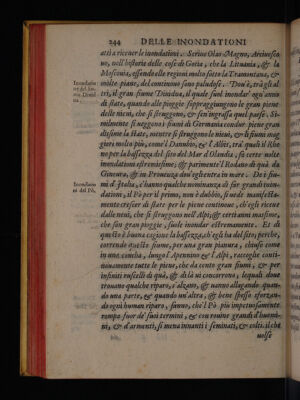 244 DELLE INONDATIONI
atti a riceuer le inondationi. Scriue Olao Magno, Arciuesco
uo, nell'historie delle cose di Gotia, che la Lituania, & la
Moscouia, essendo elle regioni molto sotto la Tramontana, &
molte piane, del continouo sano paludose. Dou'è, tra gli al
tri, il gran fiume
di state, quando alle pioggie sopraggiungono le gran piene
delle nieui, che si struggono, & s'en'ingrossa quel paese. Si-
milmente si ueggono i fiumi di Germania condur piene gran
dissime la state, mentre si struggono le nieui, & li fiumi mag
giori molto più, come l'Danubio, & l'Albi, trà quali il Rhe
no per la bassezza del sito del Mar d'Olanda, fa certe uolte
inondationi estremissime; & parimente l'Rodano di quà da
Gineura, & in Prouenza dou'egli entra in mare. De i fiu-
mi d'Italia, c'hanno qualche nominanza di far grandi inon-
dationi, il Pò per il primo, non è dubbio, si uede manifesta-
mente crescer di state per le piene continoue, ch'egli riceue
dalle neui, che si struggono nell'Alpi; & certi anni massime,
che son gran pioggie, suole inondar estremamente. Et di
questo è buona cagione la bassezza, ch'egli ha del sito, perche,
correndo questo fiume, per una gran pianura, chiuse come
in una conchа, lungo l'Apennino & l'Alpi, raccoglie conti-
nouamente tutte le piene, che da cento gran fiumi, & per
infiniti ruscelli di quà, & di là ui concorrono, le quali doue
trouano qualche riparo, s'alzano, & uanno allagando quan-
do una parte, & quando un'altra, & bene spesso sforzan-
do ogni human riparo, fanno, che'l Pò più impetuosamente
rompa fuor de' suoi termini, & con rouine grandi d'huomi-
ni, & d'armenti, si mena innanti i seminati, & colti. il che
molse
Inondatio
ni del Pò.